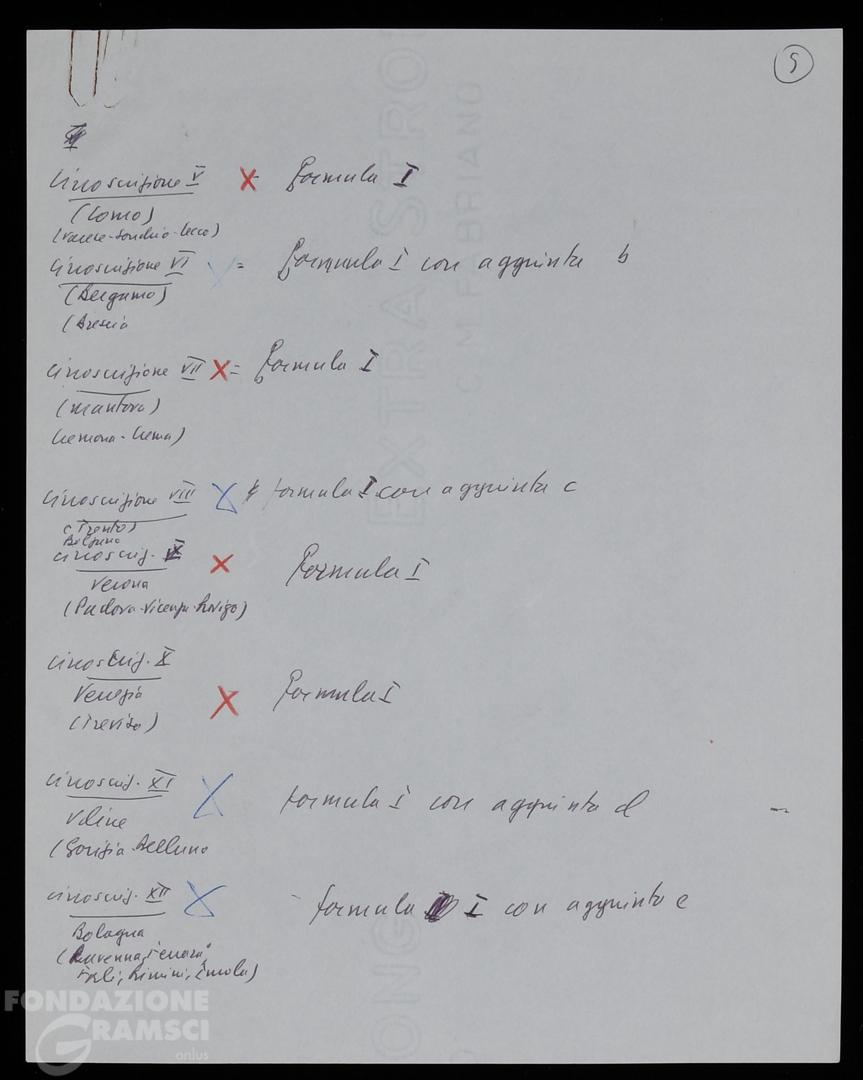 5
Circoscrizione V X = Formula I
(Como)
(Varese-Sondrio-Lecco)
Circoscrizione VI X = Formula I con aggiunta b
(Bergamo)
(Brescia
Circoscrizione VII X = Formula I
(Mantova)
Cremona-Crema)
Circoscrizione VIII X formula I con aggiunta c
(Trento)
Belluno
Circoscriz. IX X Formula I
Verona
(Padova-Vicenza-Rovigo)
Circoscriz. X
Venezia X Formula I
(Treviso)
Circoscriz. XI X formula I con aggiunta d
Udine
(Gorizia-Belluno
Circoscriz. XII X - formula I con aggiunta e
Bologna
(Ravenna, Ferrara,
Forlì, Rimini, Imola)
EXTRA STRO
C. M. FABRIANO
ONG
FONDAZIONE
GRAMSCI
onlus